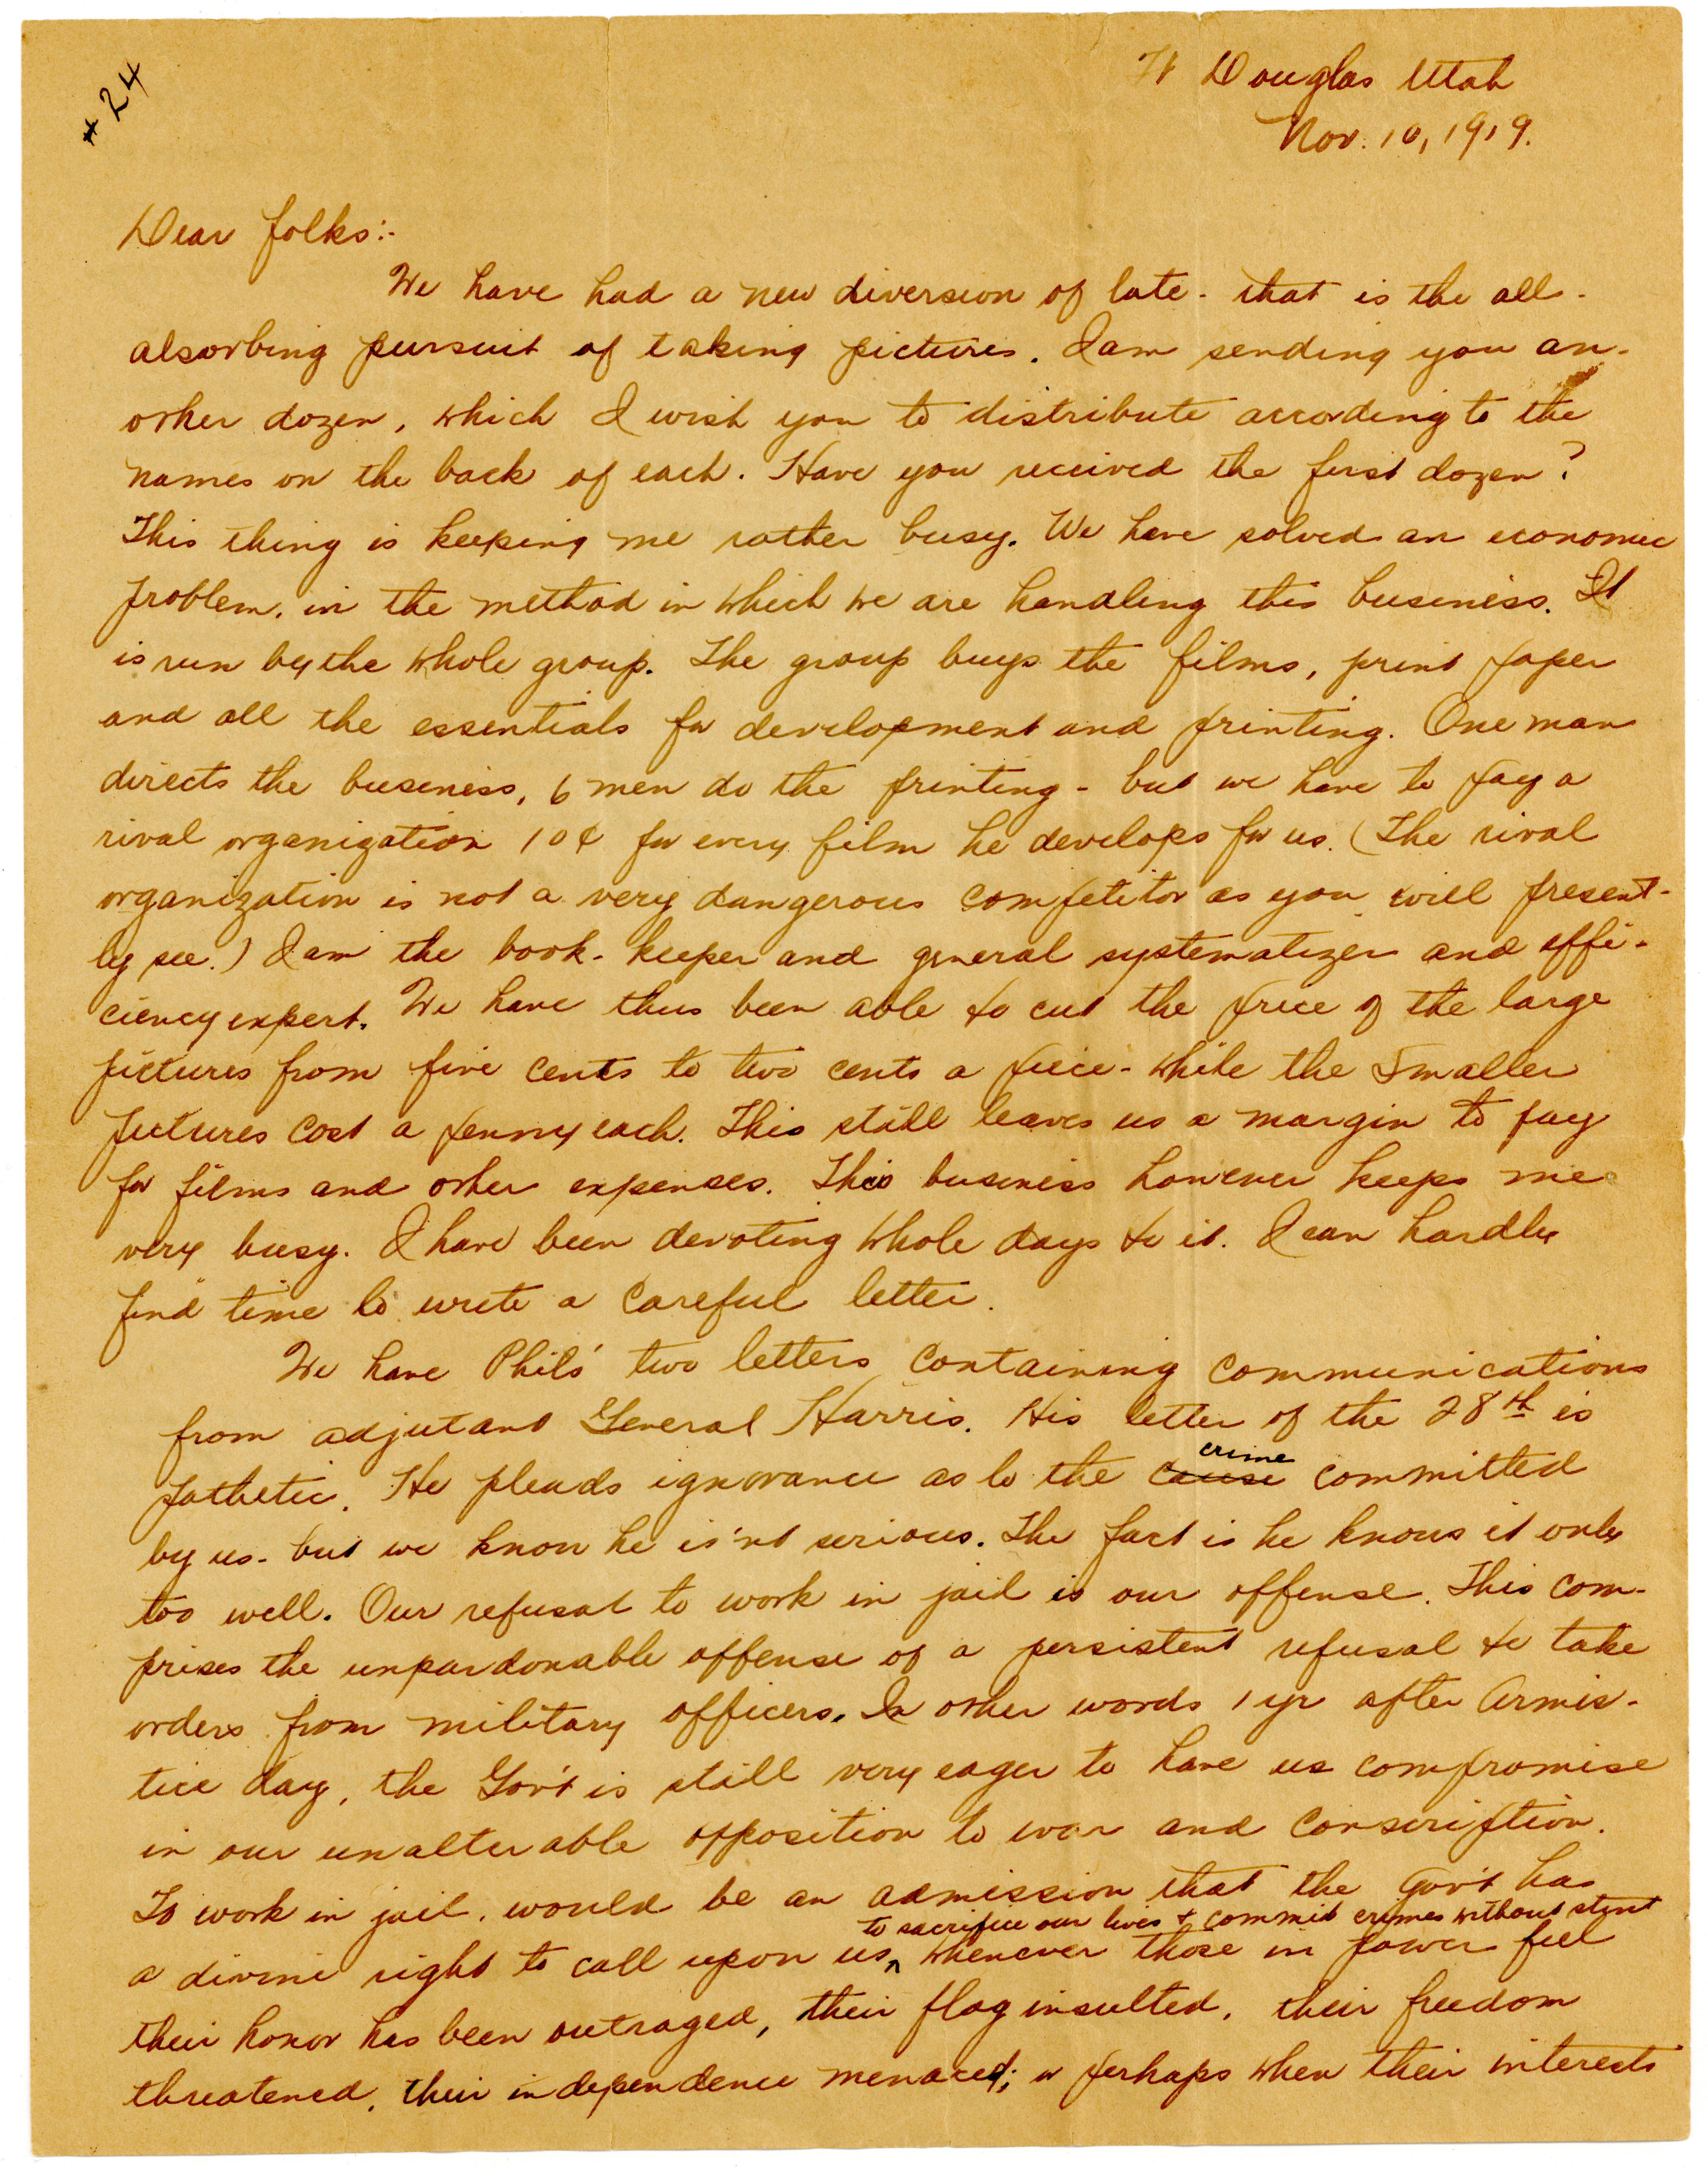 # 24
Ft Douglas Utah
Nov. 10, 1919.
Dear folks:-
We have had a new diversion of late - that is the all-
absorbing pursuit of taking pictures. I am sending you an-
other dozen, which I wish you to distribute according to the
names on the back of each. Have you received the first dozen?
This thing is keeping me rather busy. We have solved an economic
problem, in the method in which we are handling this business. It
is run by the whole group. The group buys the films, print paper
and all the essentials for development and printing. One man
directs the business, 6 men do the printing - but we have to pay a
rival organization 10¢ for every film he develops for us. (The rival
organization is not a very dangerous competitor as you will present-
ly see.) I am the book-keeper and general systematizer and effi-
ciency expert. We have thus been able to cut the price of the large
pictures from five cents to two cents a piece - while the smaller
pictures cost a penny each. This still leaves us a margin to pay
for films and other expenses. This business however keeps me
very busy. I have been devoting whole days to it. I can hardly
find time to write a careful letter.
We have Phils' two letters containing communications
from adjutant General Harris. His letter of the 28th is
pathetic. He pleads ignorance as to the cause crime committed
by us - but we know he is'nt serious. The fact is he knows it only
too well. Our refusal to work in jail is our offense. This com-
prises the unpardonable offense of a persistent refusal to take
orders from military officers. In other words 1 yr after Armis-
tice day, the Gov't is still very eager to have us compromise
in our unalterable opposition to war and conscription.
To work in jail, would be an admission that the Gov't has
to sacrifice our lives & commit crimes without stint
a divine right to call upon us, whenever those in power feel
their honor has been outraged, their flag insulted, their freedom
threatened, their independence menaced; or perhaps when their interests